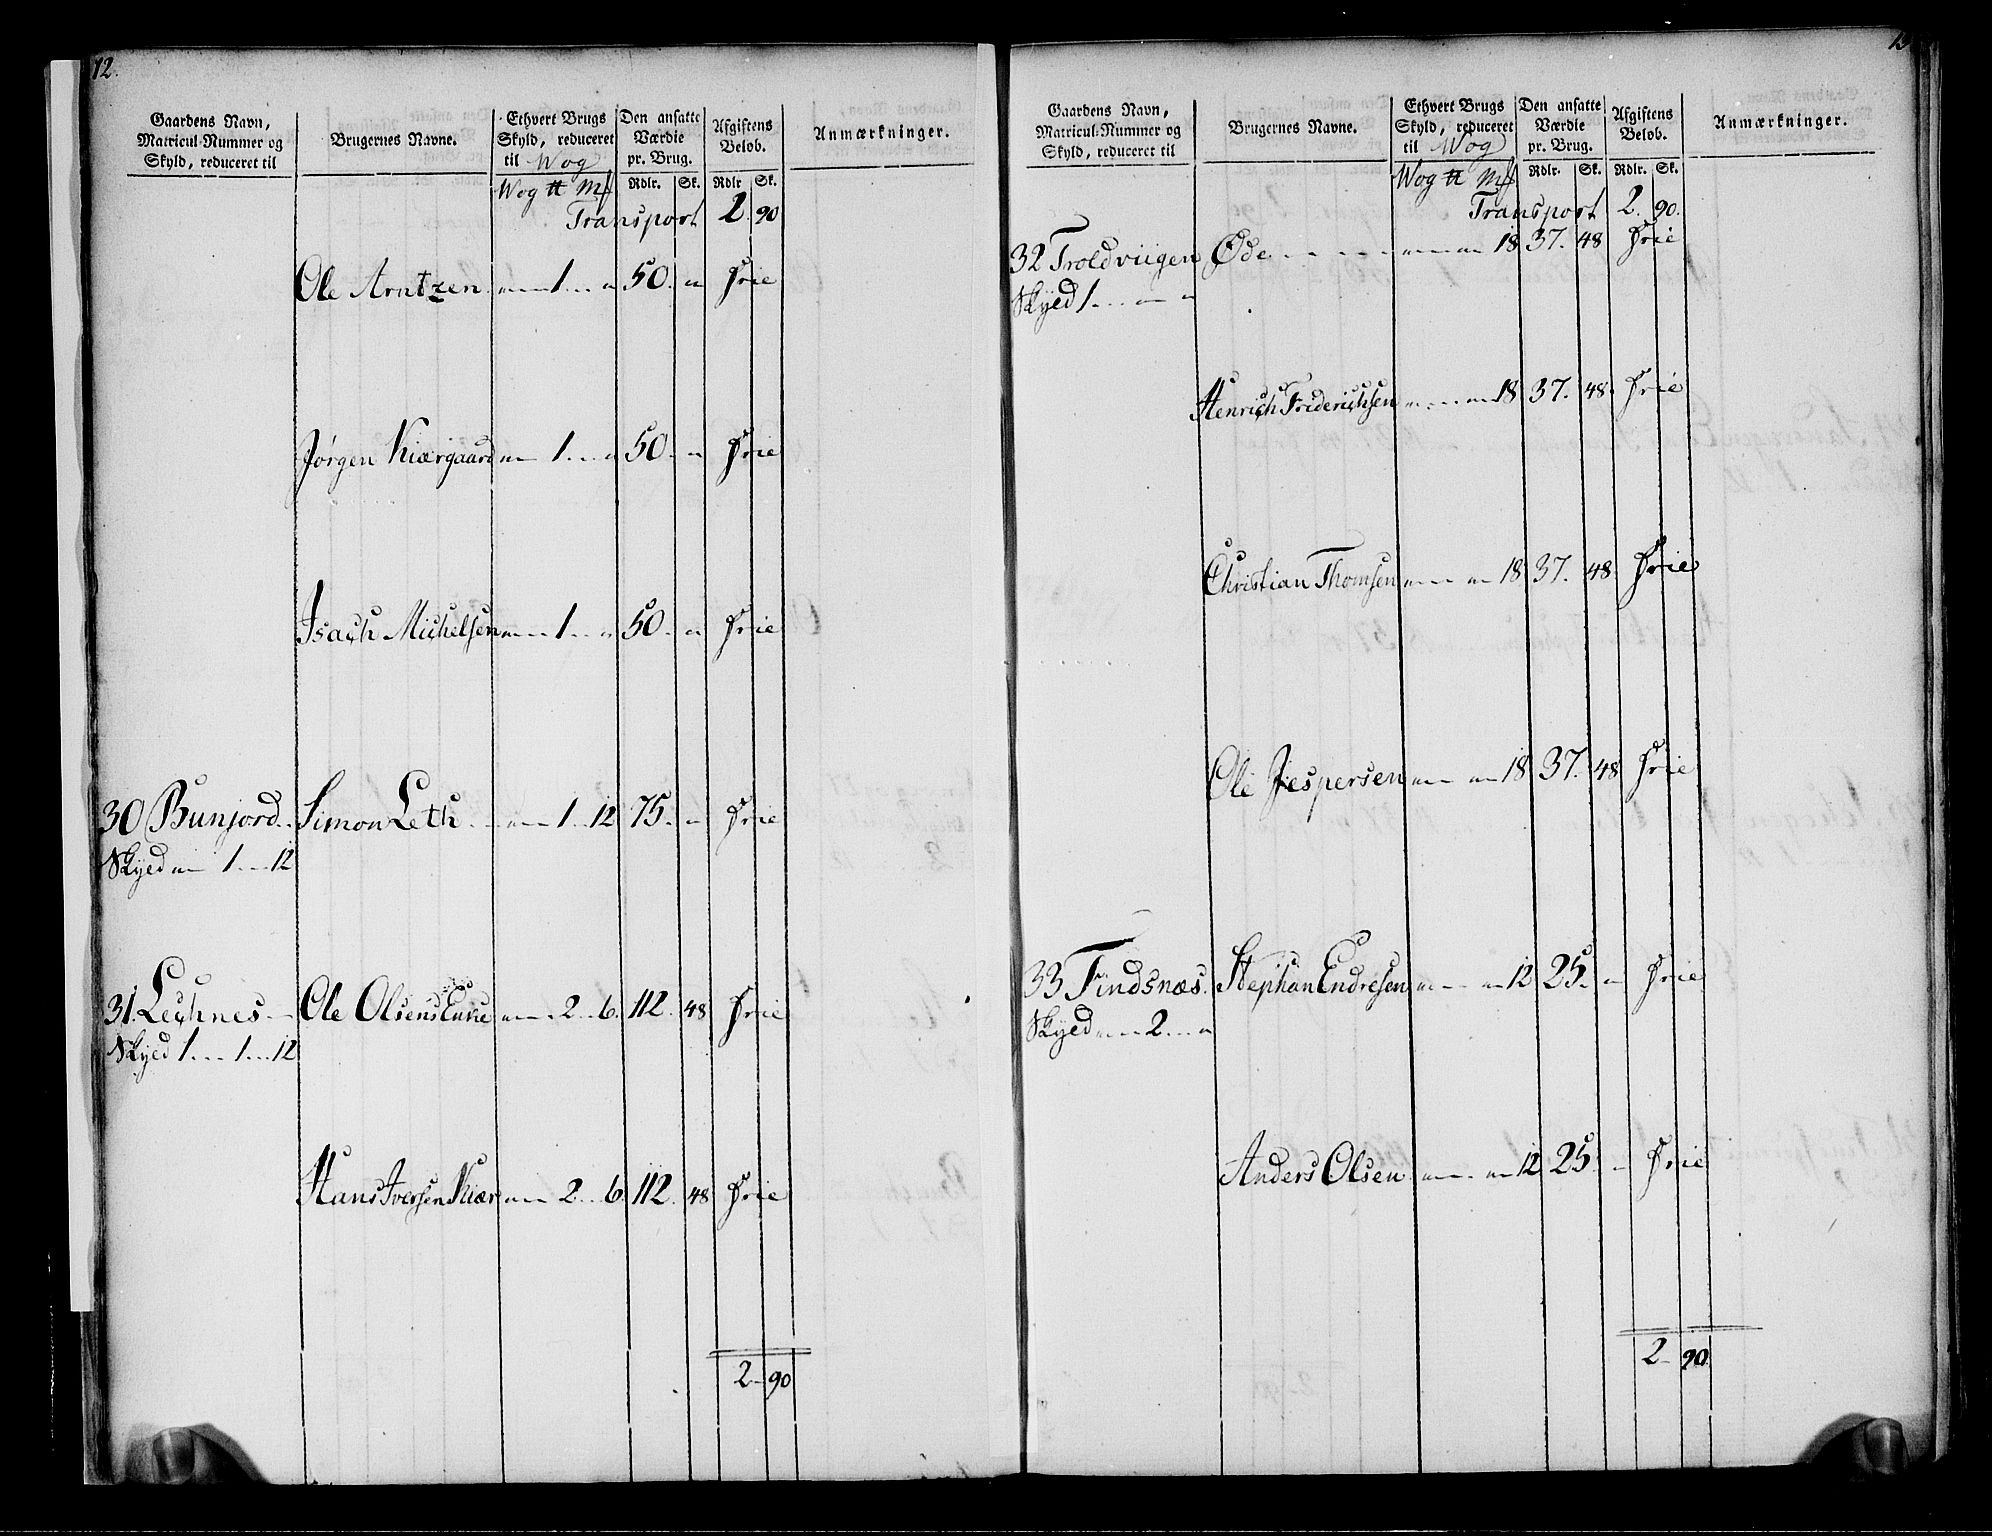 12.
Gaardens Navn, Matricul-Nummer og Skyld, reduceret til
Brugernes Navne.
Ethvert Brugs Skyld, reduceret til Wog
Den ansatte Værdie pr. Brug.
Afgiftens Beløb.
Anmærkninger.
Wog ℔ Mk Rdlr. Sk. Rdlr Sk.
Transport 2 90
Ole Arntzen 1 50. Frie
Jørgen Kiærgaard 1 50 Frie
Isach Michelsen 1 50. Frie
30 Bunjord Simon Leth 1 12 75. Frie
Skyld 1 12
31. Lechnes Ole Olsens Enke 2 6. 112. 48 Frie
Skyld 1 1 12
Hans Iversen Kiær 2 6. 112. 48 Frie
2 90
Gaardens Navn, Matricul-Nummer og Skyld, reduceret til
Brugernes Navne.
Ethvert Brugs Skyld, reduceret til Wog
Den ansatte Værdie pr. Brug.
Afgiftens Beløb.
Anmærkninger.
Wog ℔ Mk Rdlr. Sk. Rdlr. Sk.
Transport 2. 90.
32 Troldviigen Øde 18 37. 48 Frie
Skyld 1
Henrich Friderichsen 18 37. 48. Frie
Christian Thomsen 18 37. 48 Frie
Ole Jespersen 18 37. 48 Frie
33 Findsnæs. Stephan Endresen 12 25. Frie
Skyld 2
Anders Olsen 12 25. Frie
2 90.